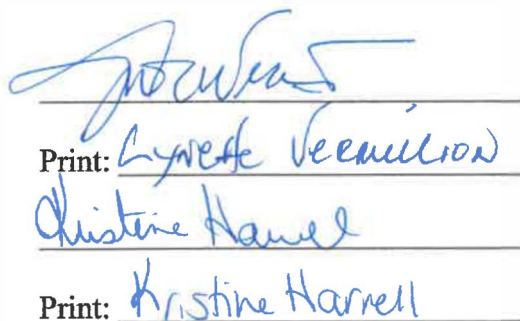 Print: Lynette Vermillion
Kristine Harrell
Print: Kristine Harrell